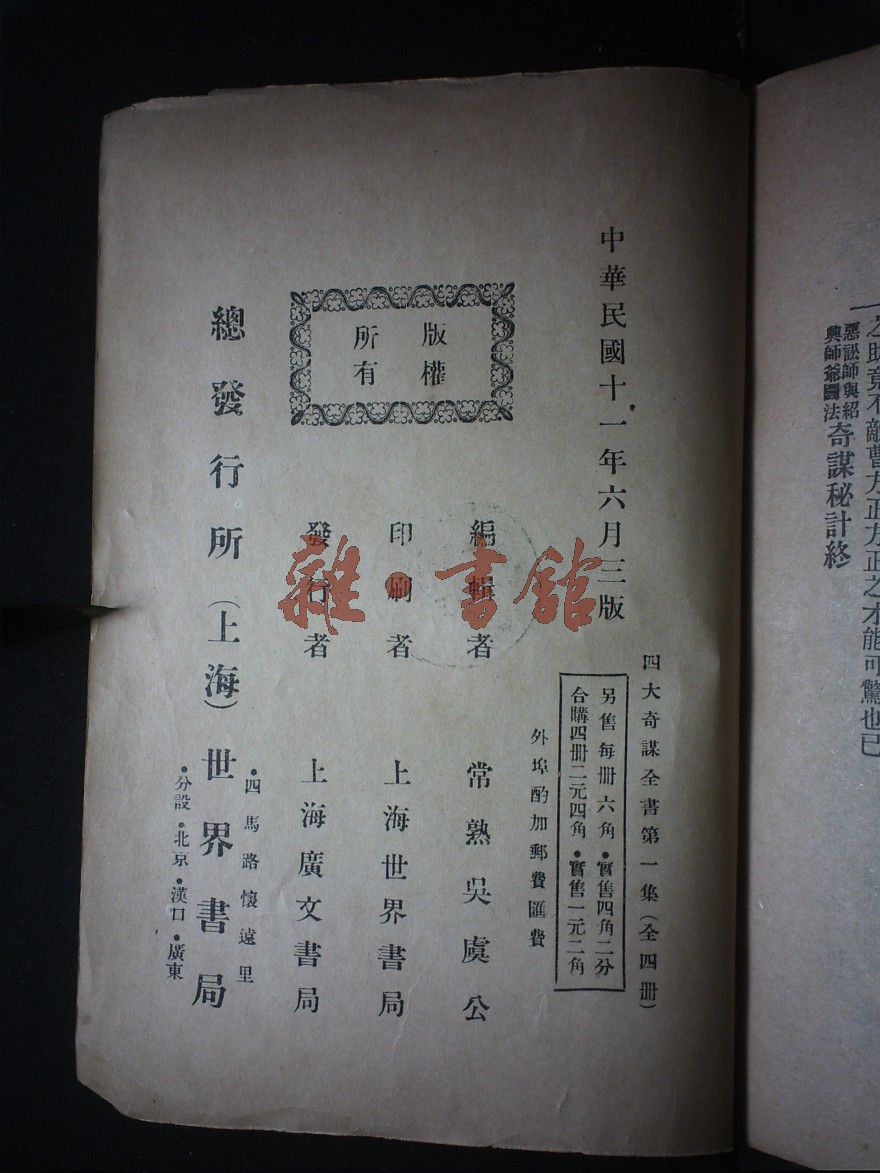 之助竟不敵曹方正方正之才能可驚也已
惡訟師與紹
興師爺鬭法
奇謀秘計終
四大奇謀全書第一集(全四册)
另售每册六角•實售四角二分
合購四册二元四角•實售一元二角
外埠酌加郵費匯費
中華民國十一年六月三版
版權
所有
編輯者 常熟吳虞公
印刷者 上海世界書局
發行者 上海廣文書局
總發行所(上海)世界書局
•四馬路懷遠里
•分設•北京•漢口•廣東
雜•書館